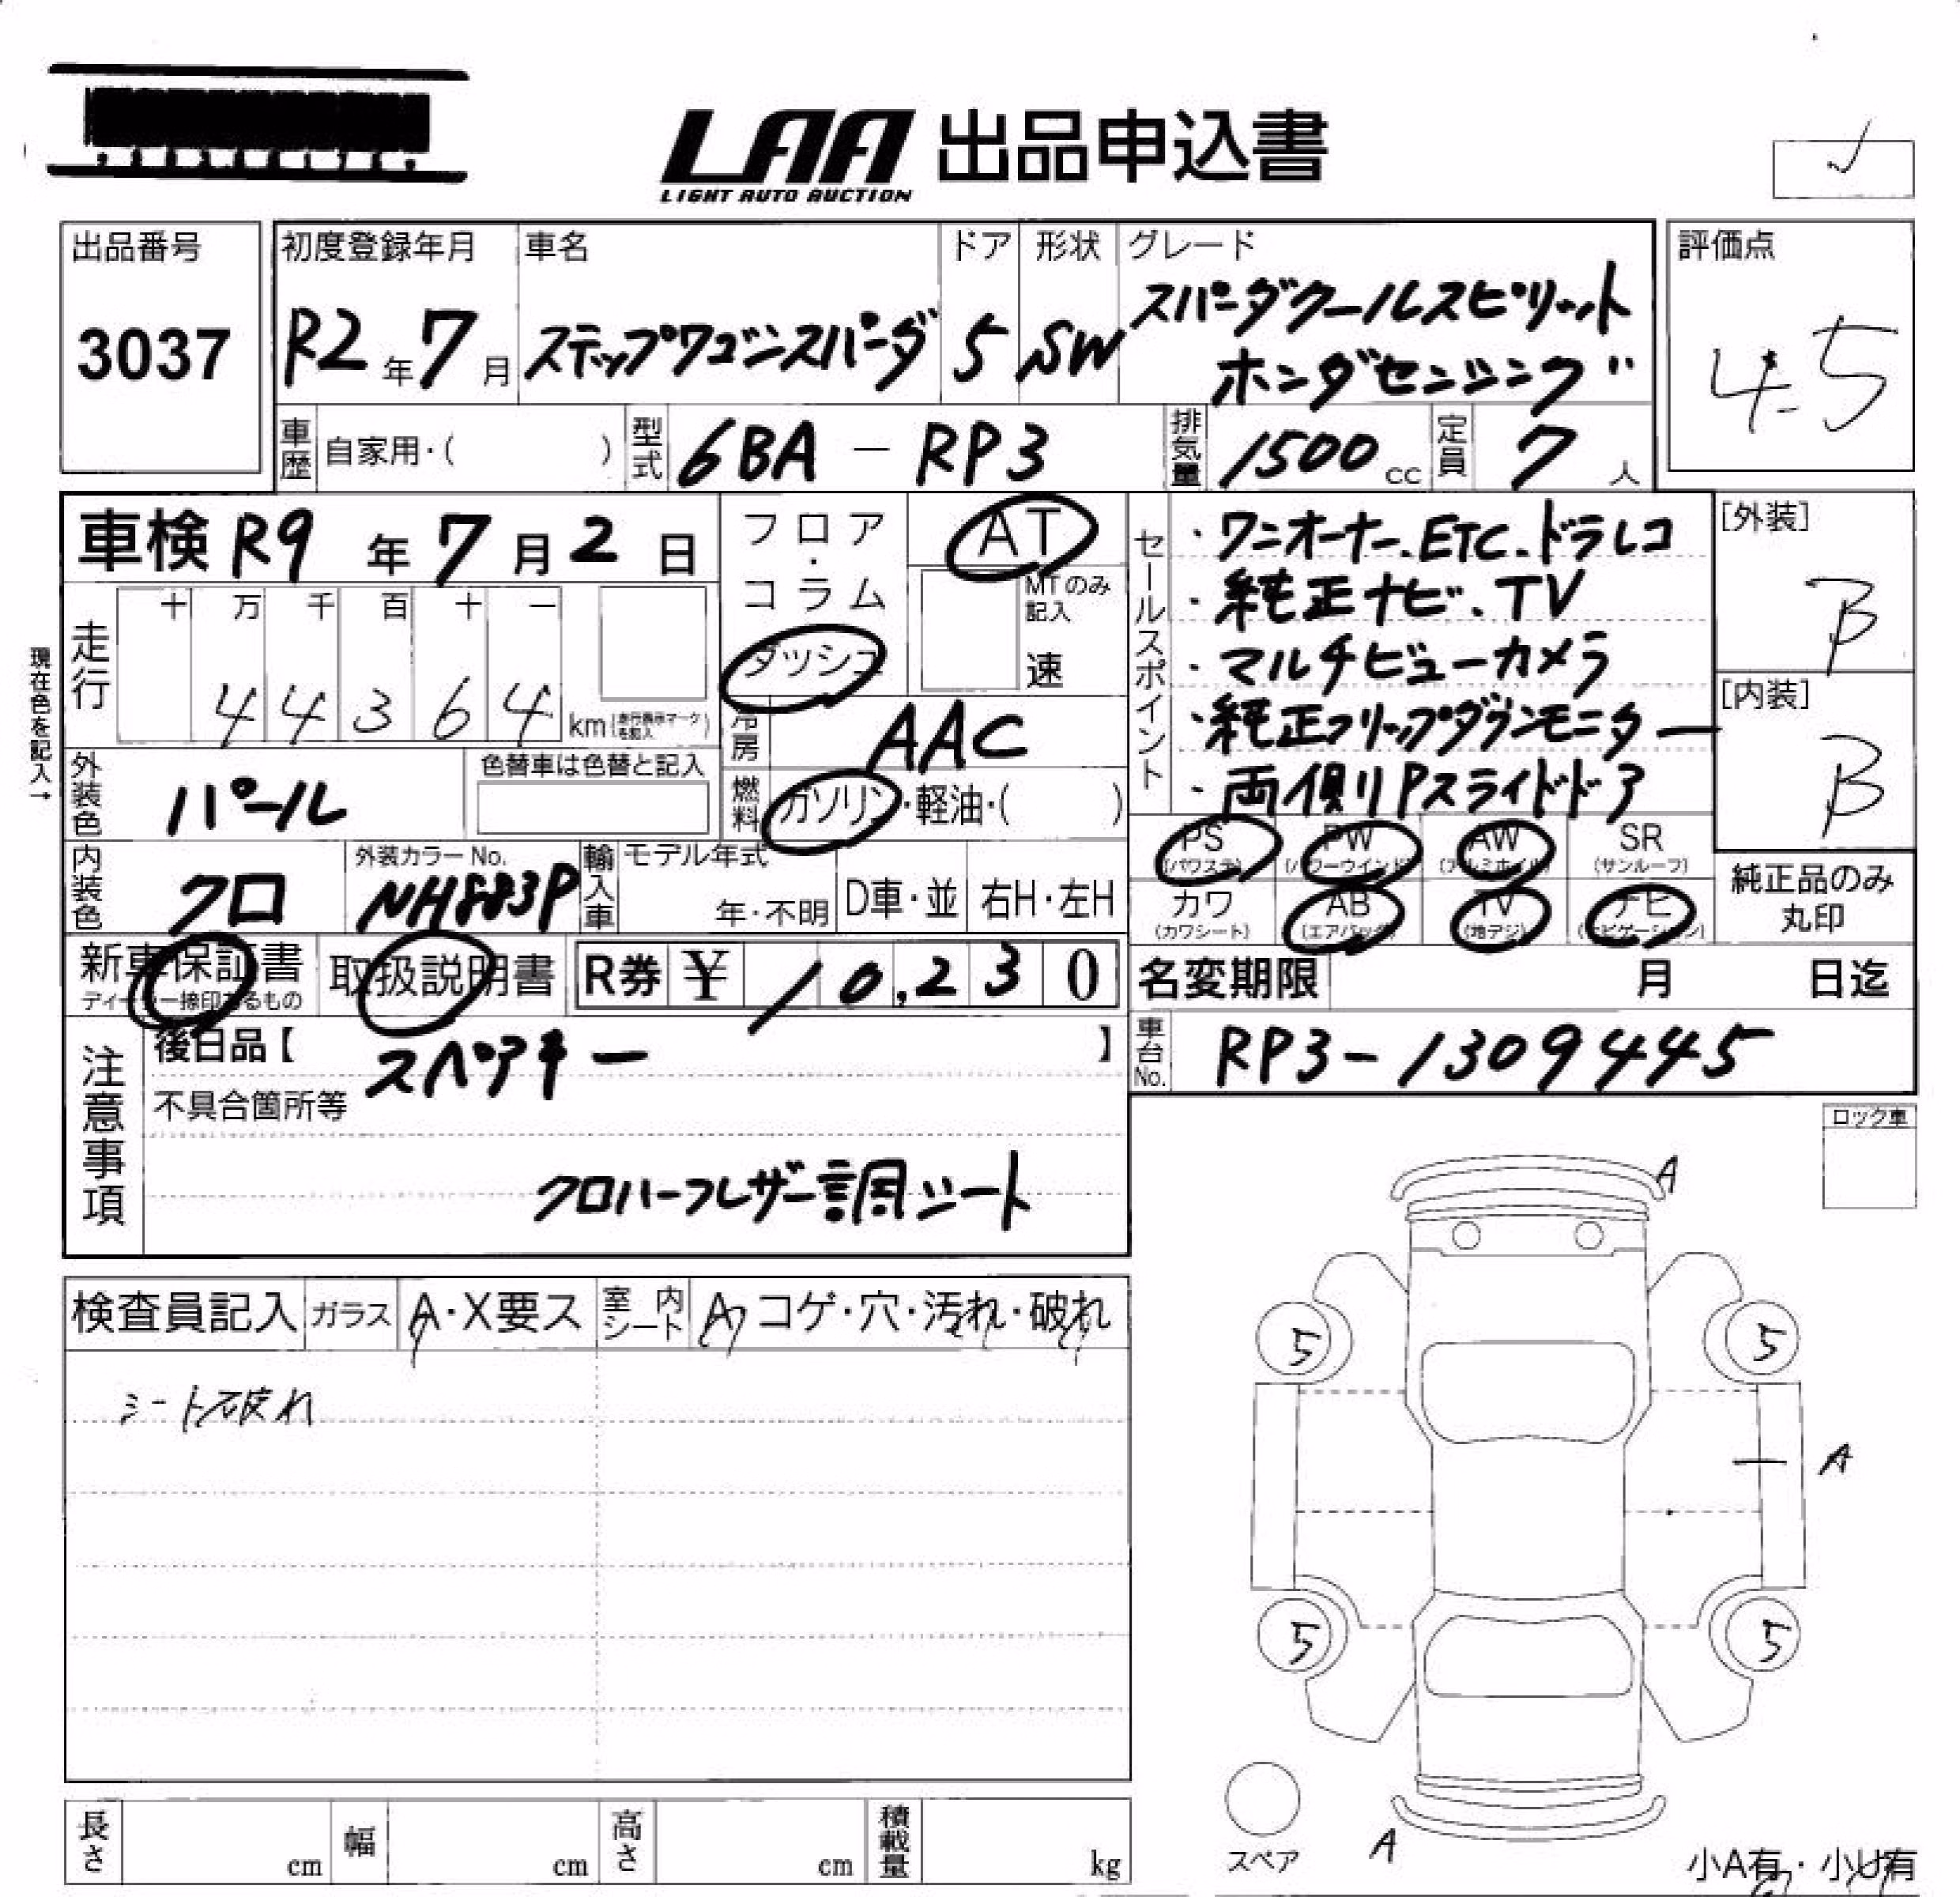 LAA 出品申込書
LIGHT AUTO AUCTION
出品番号
3037
初度登録年月
R2年7月
車名
ステップワゴンスパーダ
ドア
5
形状
SW
グレード
スパーダクールスピリット
ホンダセンシング
評価点
4.5
車歴 自家用・( )
型式 6BA - RP3
排気量 1500 cc
定員 7 人
車検 R9 年 7 月 2 日
フロア・コラム
ダッシュ
AT
MTのみ記入
速
現在色を記入→
走行
十 万 千 百 十 一
4 4 3 6 4 km
冷房 AAC
外装色 パール
色替車は色替と記入
燃料 ガソリン・軽油・( )
内装色 クロ
外装カラーNo.
NH883P
輸入車 モデル年式
年・不明
D車・並
右H・左H
セールスポイント
・ワンオーナー、ETC、ドラレコ
・純正ナビ、TV
・マルチビューカメラ
・純正フリップダウンモニター
・両側Pスライドドア
[外装]
B
[内装]
B
PS (パワステ)
PW (パワーウインド)
AW (アルミホイル)
SR (サンルーフ)
カワ (カワシート)
AB (エアバッグ)
TV (地デジ)
ナビ (ナビゲーション)
純正品のみ
丸印
新車保証書
ディーラー捺印あるもの
取扱説明書
R券 ¥ 10,230
名変期限 月 日迄
車台No. RP3-1309445
注意事項
後日品【 スペアキー 】
不具合箇所等
クロハーフレザー調シート
ロック車
検査員記入 ガラス A・X要ス 室内シート A コゲ・穴・汚れ・破れ
シート破れ
A
5 5
A
5 5
A
スペア
小A有・小U有
長さ cm 幅 cm 高さ cm 積載量 kg